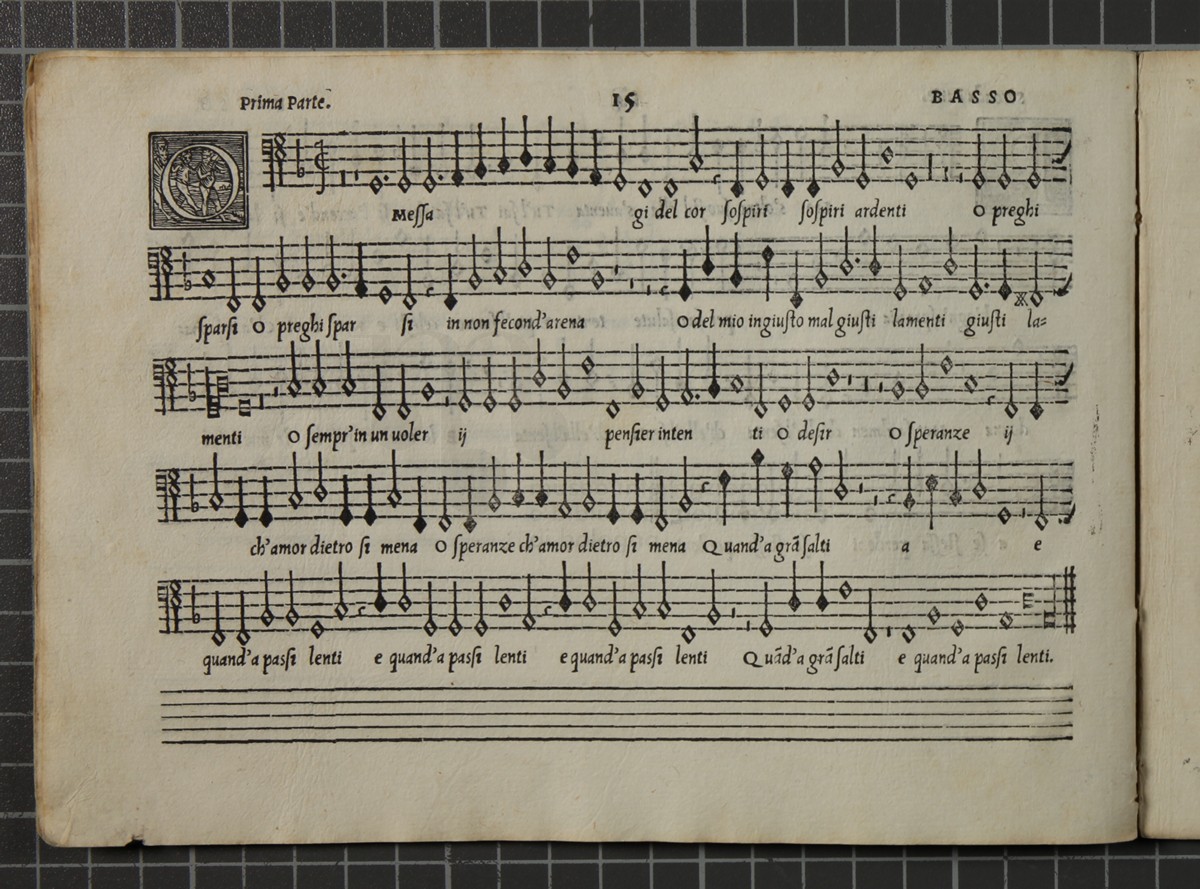 Prima Parte. 15 BASSO
O Messa gi del cor ſoſpiri ſoſpiri ardenti O preghi
ſparſi O preghi ſpar ſi in non fecond'arena O del mio ingiuſto mal giuſti lamenti giuſti la=
menti O ſempr'in un uoler ij penſier inten ti O deſir O ſperanze ij
ch'amor dietro ſi mena O ſperanze ch'amor dietro ſi mena Quand'a grã ſalti a e
quand'a paſſi lenti e quand'a paſſi lenti e quand'a paſſi lenti Quãd'a grã ſalti e quand'a paſſi lenti.